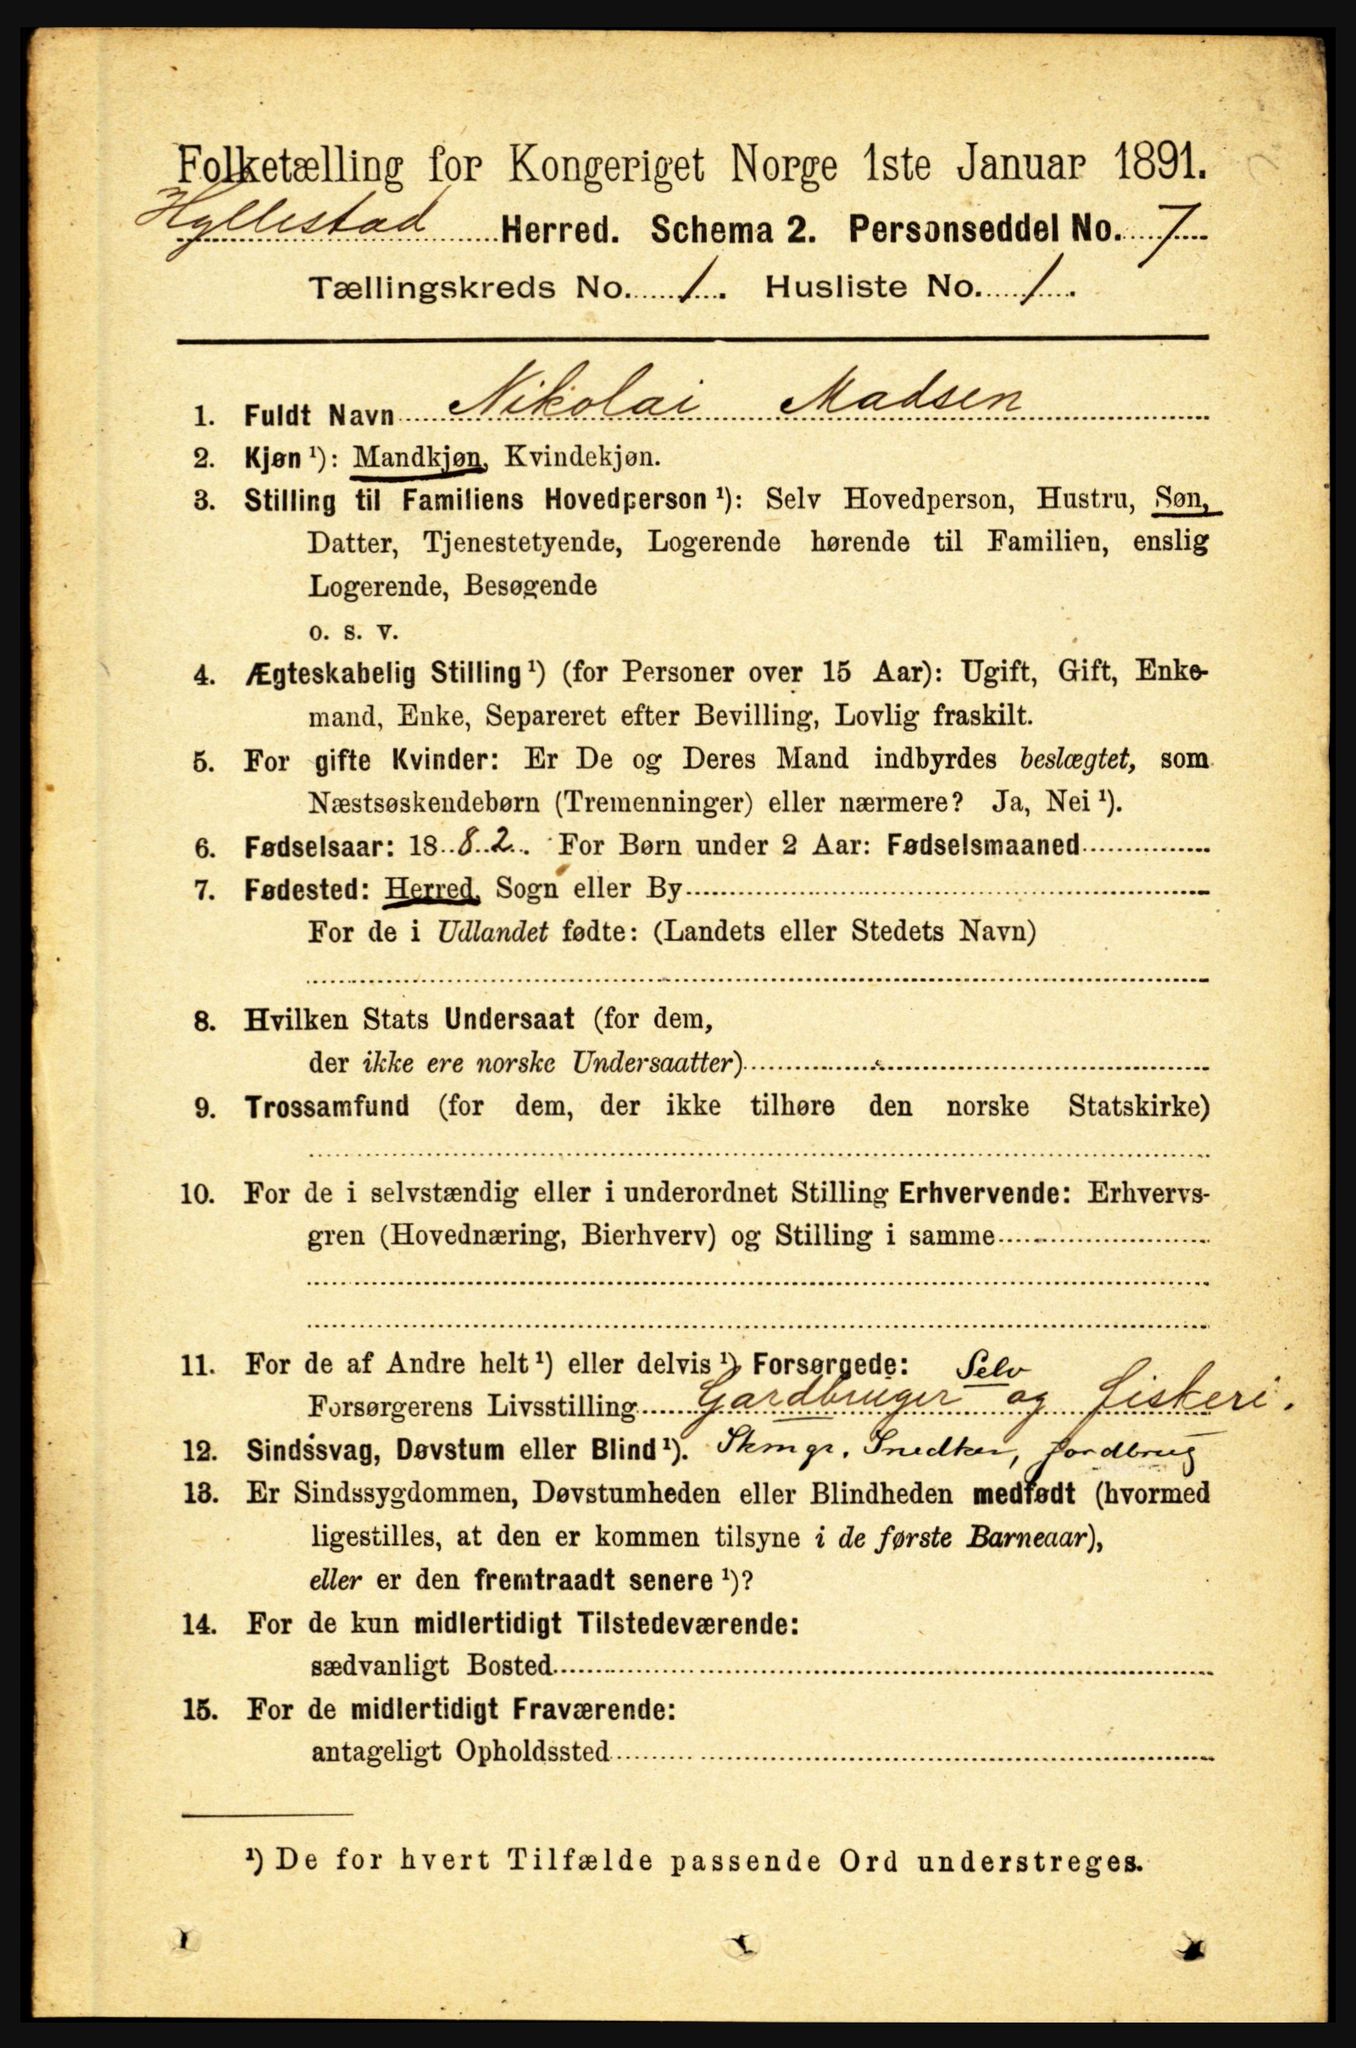 Folketælling for Kongeriget Norge 1ste Januar 1891.
Hyllestad Herred. Schema 2. Personseddel No. 7
Tællingskreds No. 1. Husliste No. 1.
1. Fuldt Navn Nikolai Madsen
2. Kjøn ¹): Mandkjøn, Kvindekjøn.
3. Stilling til Familiens Hovedperson ¹): Selv Hovedperson, Hustru, Søn,
Datter, Tjenestetyende, Logerende hørende til Familien, enslig
Logerende, Besøgende
o. s. v.
4. Ægteskabelig Stilling ¹) (for Personer over 15 Aar): Ugift, Gift, Enke-
mand, Enke, Separeret efter Bevilling, Lovlig fraskilt.
5. For gifte Kvinder: Er De og Deres Mand indbyrdes beslægtet, som
Næstsøskendebørn (Tremenninger) eller nærmere? Ja, Nei ¹).
6. Fødselsaar: 1882. For Børn under 2 Aar: Fødselsmaaned
7. Fødested: Herred, Sogn eller By
For de i Udlandet fødte: (Landets eller Stedets Navn)
8. Hvilken Stats Undersaat (for dem,
der ikke ere norske Undersaatter)
9. Trossamfund (for dem, der ikke tilhøre den norske Statskirke)
10. For de i selvstændig eller i underordnet Stilling Erhvervende: Erhvervs-
gren (Hovednæring, Bierhverv) og Stilling i samme
11. For de af Andre helt ¹) eller delvis ¹) Forsørgede: Selv
Forsørgerens Livsstilling Gardbruger og fiskeri.
12. Sindssvag, Døvstum eller Blind ¹). Skmgr. Snedker, jordbrug
13. Er Sindssygdommen, Døvstumheden eller Blindheden medfødt (hvormed
ligestilles, at den er kommen tilsyne i de første Barneaar),
eller er den fremtraadt senere ¹)?
14. For de kun midlertidigt Tilstedeværende:
sædvanligt Bosted
15. For de midlertidigt Fraværende:
antageligt Opholdssted
¹) De for hvert Tilfælde passende Ord understreges.